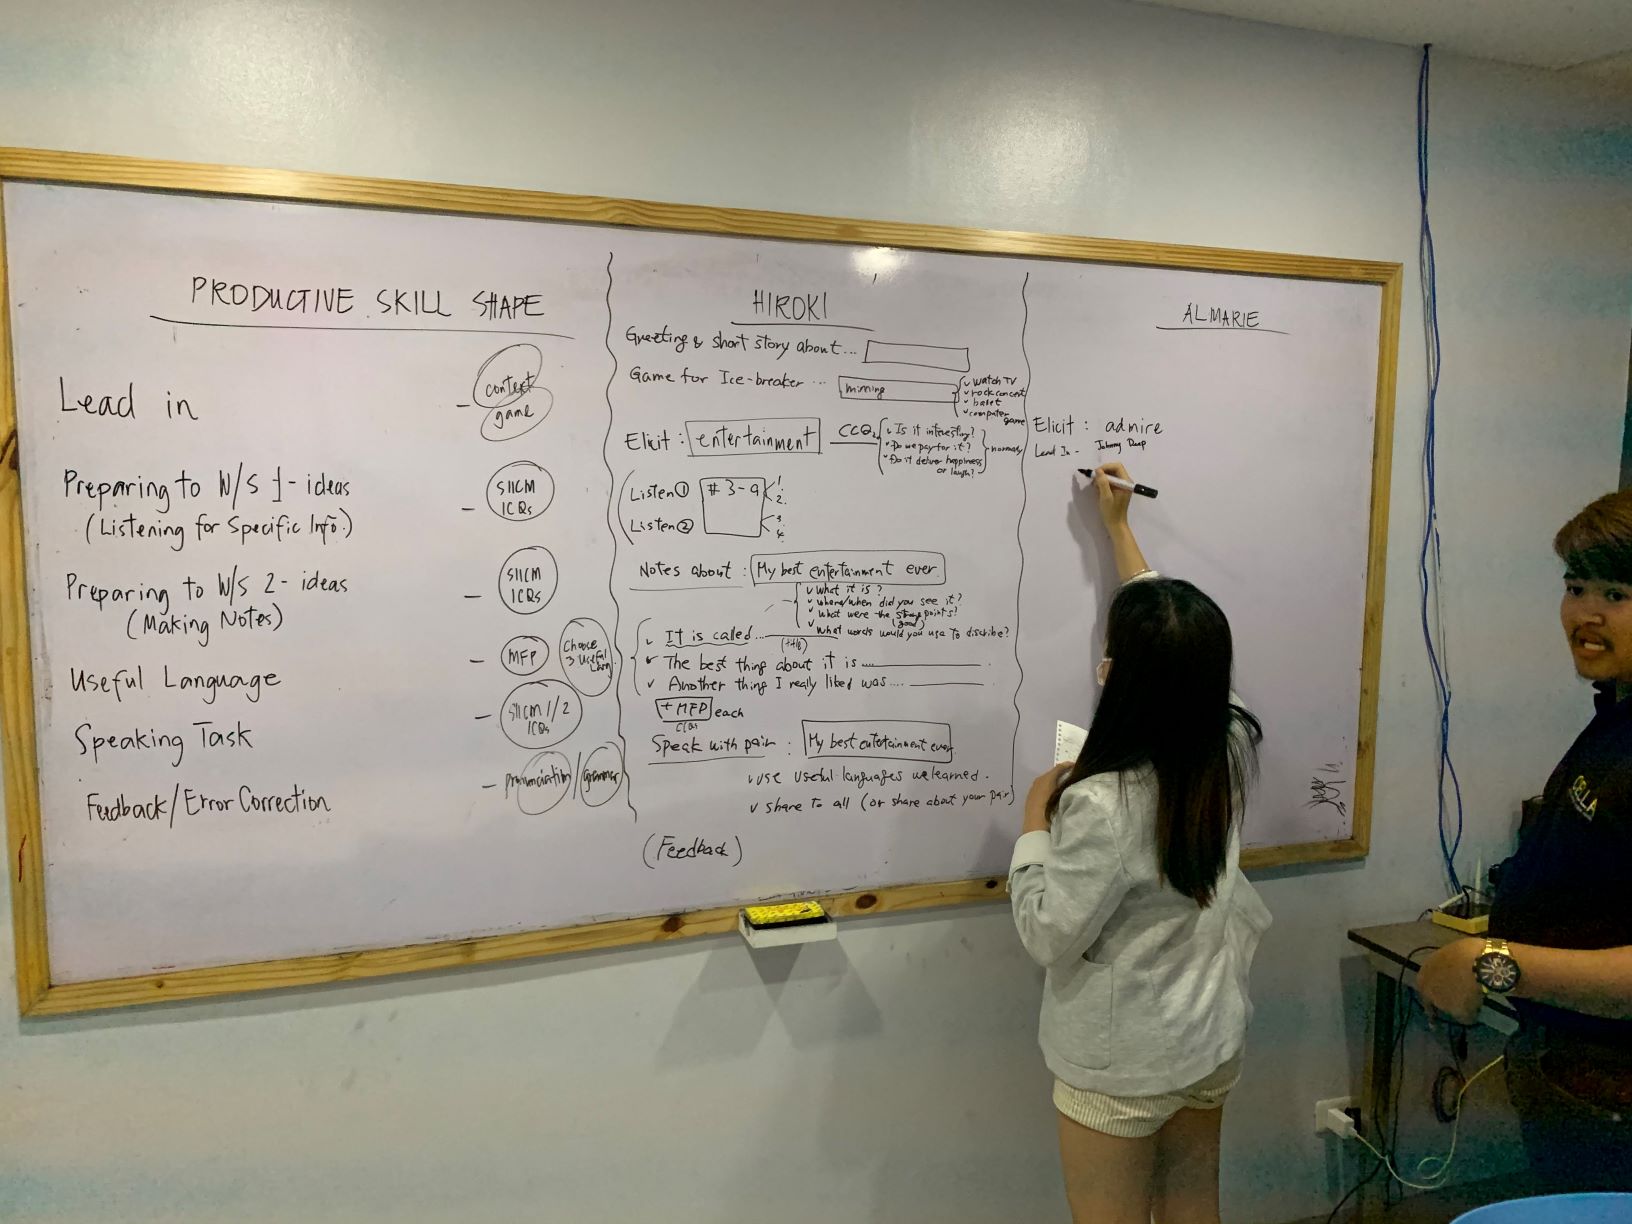 PRODUCTIVE SKILL SHAPE
Lead in
- context
game
Preparing to W/S 1 - ideas
(Listening for Specific Info.)
- SIICM
ICQs
Preparing to W/S 2 - ideas
(Making Notes)
- SIICM
ICQs
Useful Language
- MFP
Choose
3 Useful
Lang.
Speaking Task
- SIICM 1/2
ICQs
Feedback/Error Correction
- pronunciation/grammar
HIROKI
Greeting & short story about...
Game for Ice-breaker ...
miming
✓ watch TV
✓ rock concert
✓ ballet
✓ computer
game
Elicit : entertainment
CCQs
✓ Is it interesting?
✓ Do we pay for it?
✓ Do it deliver happiness
or laugh?
normally
Listen ①
# 3-9
1.
2.
Listen ②
3
4.
Notes about : My best entertainment ever.
✓ What it is ?
✓ where/when did you see it?
✓ What were the points?
(good)
✓ What words would you use to discribe?
✓ It is called...
✓ The best thing about it is ....
✓ Another thing I really liked was....
+ MFP each
CCQs
Speak with pair : My best entertainment ever
✓ use useful languages we learned.
✓ share to all (or share about your pair)
(Feedback)
ALMARIE
Elicit : admire
Lead In - Johnny Deep